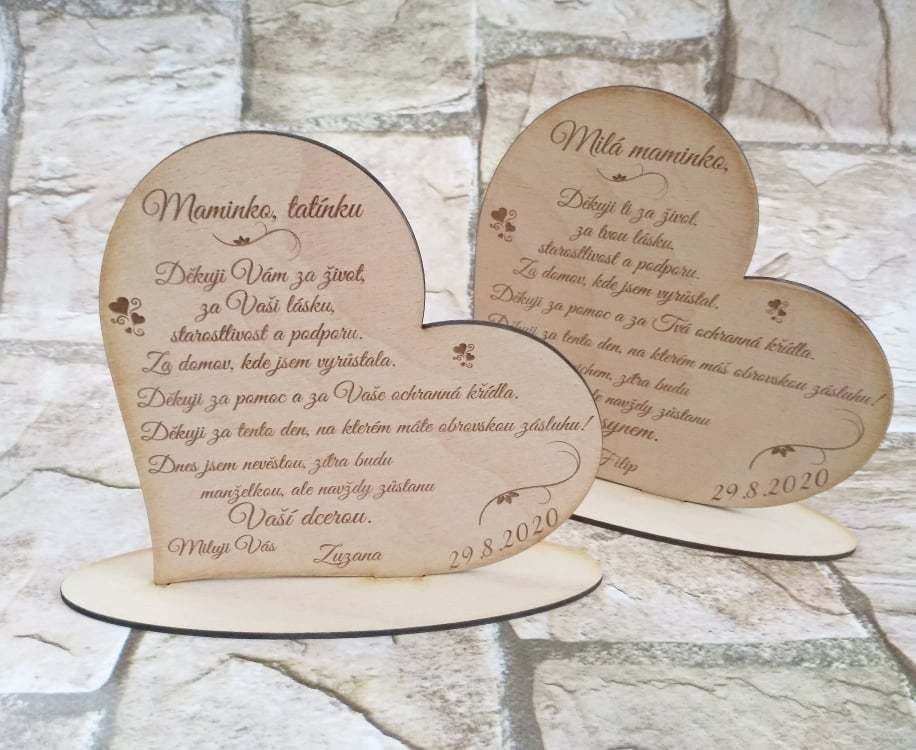 Maminko, tatínku
Děkuji Vám za život,
za Vaši lásku,
starostlivost a podporu.
Za domov, kde jsem vyrůstala.
Děkuji za pomoc a za Vaše ochranná křídla.
Děkuji za tento den, na kterém máte obrovskou zásluhu!
Dnes jsem nevěstou, zítra budu
manželkou, ale navždy zůstanu
Vaší dcerou.
Miluji Vás
Zuzana
29.8.2020
Milá maminko,
Děkuji ti za život.
za tvou lásku,
starostlivost a podporu.
Za domov, kde jsem vyrůstal.
Děkuji za pomoc a za Tvá ochranná křídla.
Děkuji za tento den, na kterém máš obrovskou zásluhu!
zítra budu
ale navždy zůstanu
synem.
Filip
29.8.2020